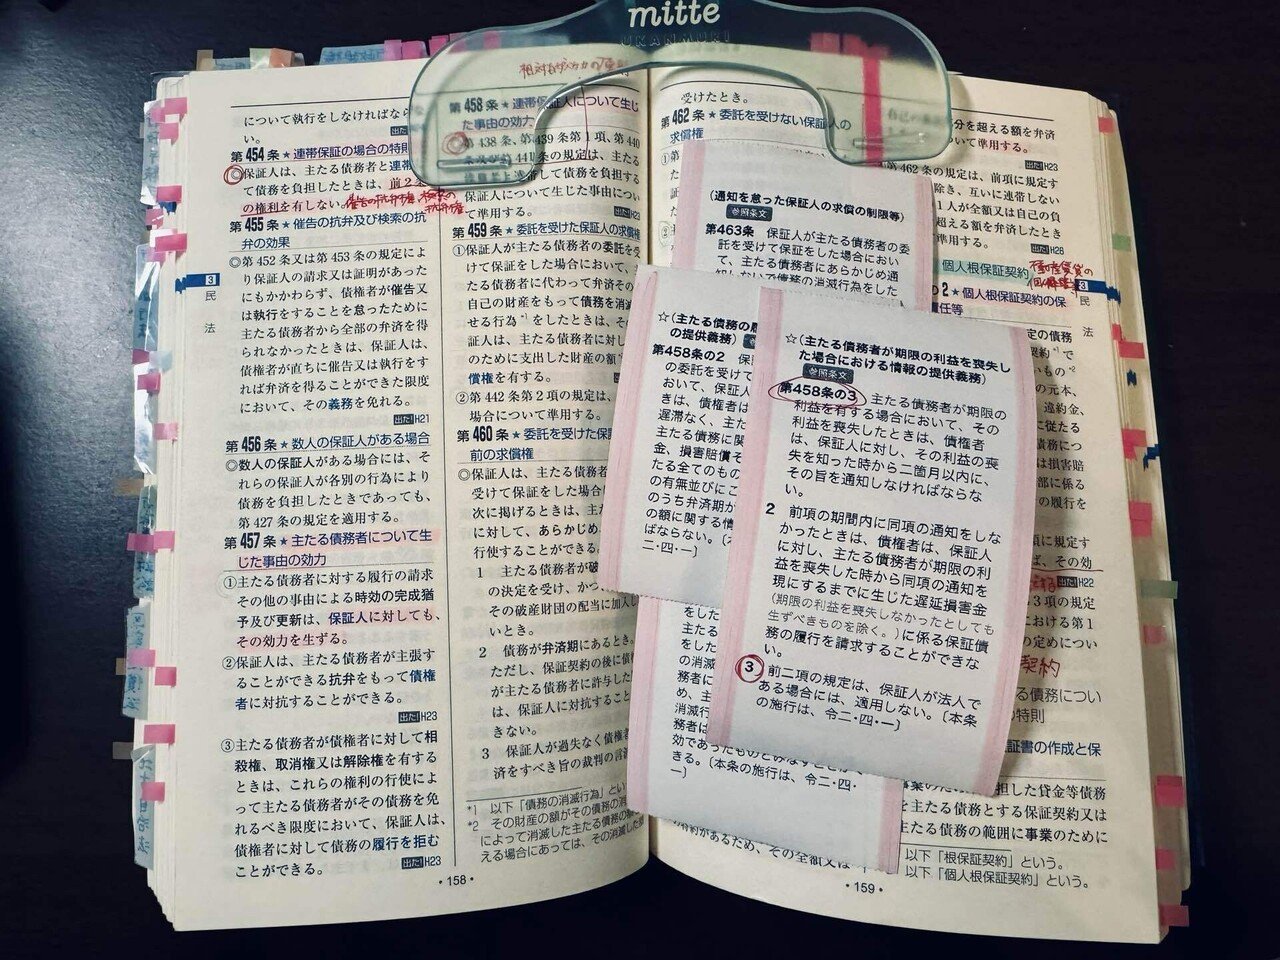 mitte
UKANMURI
について執行をしなければなら
い。
出た!
第454条★連帯保証の場合の特則
◎保証人は、主たる債務者と連帯
て債務を負担したときは、前2条
の権利を有しない。
催告の抗弁権、検索の
抗弁権
第455条★催告の抗弁及び検索の抗
弁の効果
◎第452条又は第453条の規定によ
り保証人の請求又は証明があった
にもかかわらず、債権者が催告又
は執行をすることを怠ったために
主たる債務者から全部の弁済を得
られなかったときは、保証人は、
債権者が直ちに催告又は執行をす
れば弁済を得ることができた限度
において、その義務を免れる。
出た!H21
第456条★数人の保証人がある場合
◎数人の保証人がある場合には、そ
れらの保証人が各別の行為により
債務を負担したときであっても、
第427条の規定を適用する。
第457条★主たる債務者について生
じた事由の効力
①主たる債務者に対する履行の請求
その他の事由による時効の完成猶
予及び更新は、保証人に対しても、
その効力を生ずる。
②保証人は、主たる債務者が主張す
ることができる抗弁をもって債権
者に対抗することができる。
出た!H23
③主たる債務者が債権者に対して相
殺権、取消権又は解除権を有する
ときは、これらの権利の行使によ
って主たる債務者がその債務を免
れるべき限度において、保証人は、
債権者に対して債務の履行を拒む
ことができる。
出た!H23
3
民
法
・158・
第458条★連帯保証人について生じ
た事由の効力
◎第438条、第439条第1項、第440
条及び第441条の規定は、主たる
債務者と連帯して債務を負担する
保証人について生じた事由につい
て準用する。
第459条★委託を受けた保証人の求償権
①保証人が主たる債務者の委託を受
けて保証をした場合において、
たる債務者に代わって弁済その
自己の財産をもって債務を消滅
せる行為*1をしたときは、その
証人は、主たる債務者に対し
のために支出した財産の額
償権を有する。
②第442条第2項の規定は、
場合について準用する。
第460条★委託を受けた保証
前の求償権
◎保証人は、主たる債務者
受けて保証をした場合
次に掲げるときは、主た
に対して、あらかじめ、
行使することができる。
1 主たる債務者が破
の決定を受け、かつ
その破産財団の配当に加入し
いとき。
2 債務が弁済期にあるとき。
ただし、保証契約の後に債権
が主たる債務者に許与した
は、保証人に対抗すること
きない。
3 保証人が過失なく債権者
済をすべき旨の裁判の言渡
*1 以下「債務の消滅行為」とい
*2 その財産の額がその債務の消
によって消滅した主たる債務の
える場合にあっては、その消滅
受けたとき。
第462条★委託を受けない保証人の
求償権
(通知を怠った保証人の求償の制限等)
参照条文
第463条 保証人が主たる債務者の委
託を受けて保証をした場合におい
て、主たる債務者にあらかじめ通
知しないで債務の消滅行為をした
☆(主たる債務の履
の提供義務)
第458条の2 保
の委託を受けて
おいて、保証人
きは、債権者は
遅滞なく、主た
主たる債務に関
金、損害賠償そ
たる全てのもの
の有無並びにこ
のうち弁済期が
の額に関する情
ばならない。〔本
二・四・一〕
☆(主たる債務者が期限の利益を喪失し
た場合における情報の提供義務)
参照条文
第458条の3 主たる債務者が期限の
利益を有する場合において、その
利益を喪失したときは、債権者
は、保証人に対し、その利益の喪
失を知った時から二箇月以内に、
その旨を通知しなければならな
い。
2 前項の期間内に同項の通知をしな
かったときは、債権者は、保証人
に対し、主たる債務者が期限の利
益を喪失した時から同項の通知を
現にするまでに生じた遅延損害金
(期限の利益を喪失しなかったとしても
生ずべきものを除く。)に係る保証債
務の履行を請求することができな
い。
3 前二項の規定は、保証人が法人で
ある場合には、適用しない。〔本条
の施行は、令二・四・一〕
をした
主たる
をした
の消滅
務者に
め、主
消滅行
務者は
効であったものとみなすことが
きる。〔本条の施行は、令二・四・
一〕
分を超える額を弁済
いて準用する。
出た!H23
462条の規定は、前項に規定す
除き、互いに連帯しない
1人が全額又は自己の負
超える額を弁済したとき
準用する。
出た!H26
個人根保証契約
の2★個人根保証契約の保
責任等
3
民
法
定の債務
契約*1で
いもの*2
の元本、
違約金、
に従たる
債務につ
は損害賠
部に係る
の履行を
に規定す
ば、その効
出た!H22
3項の規定
における第1
の定めについ
契約
る債務につい
の特則
証書の作成と保
担した貸金等債務
を主たる債務とする保証契約又は
主たる債務の範囲に事業のために
があるため、その全額又は
以下「根保証契約」という。
以下「個人根保証契約」という。
・159・